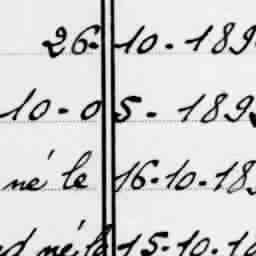 26-10-189
10-05-189
né le 16-10-18
né le 15-10-18